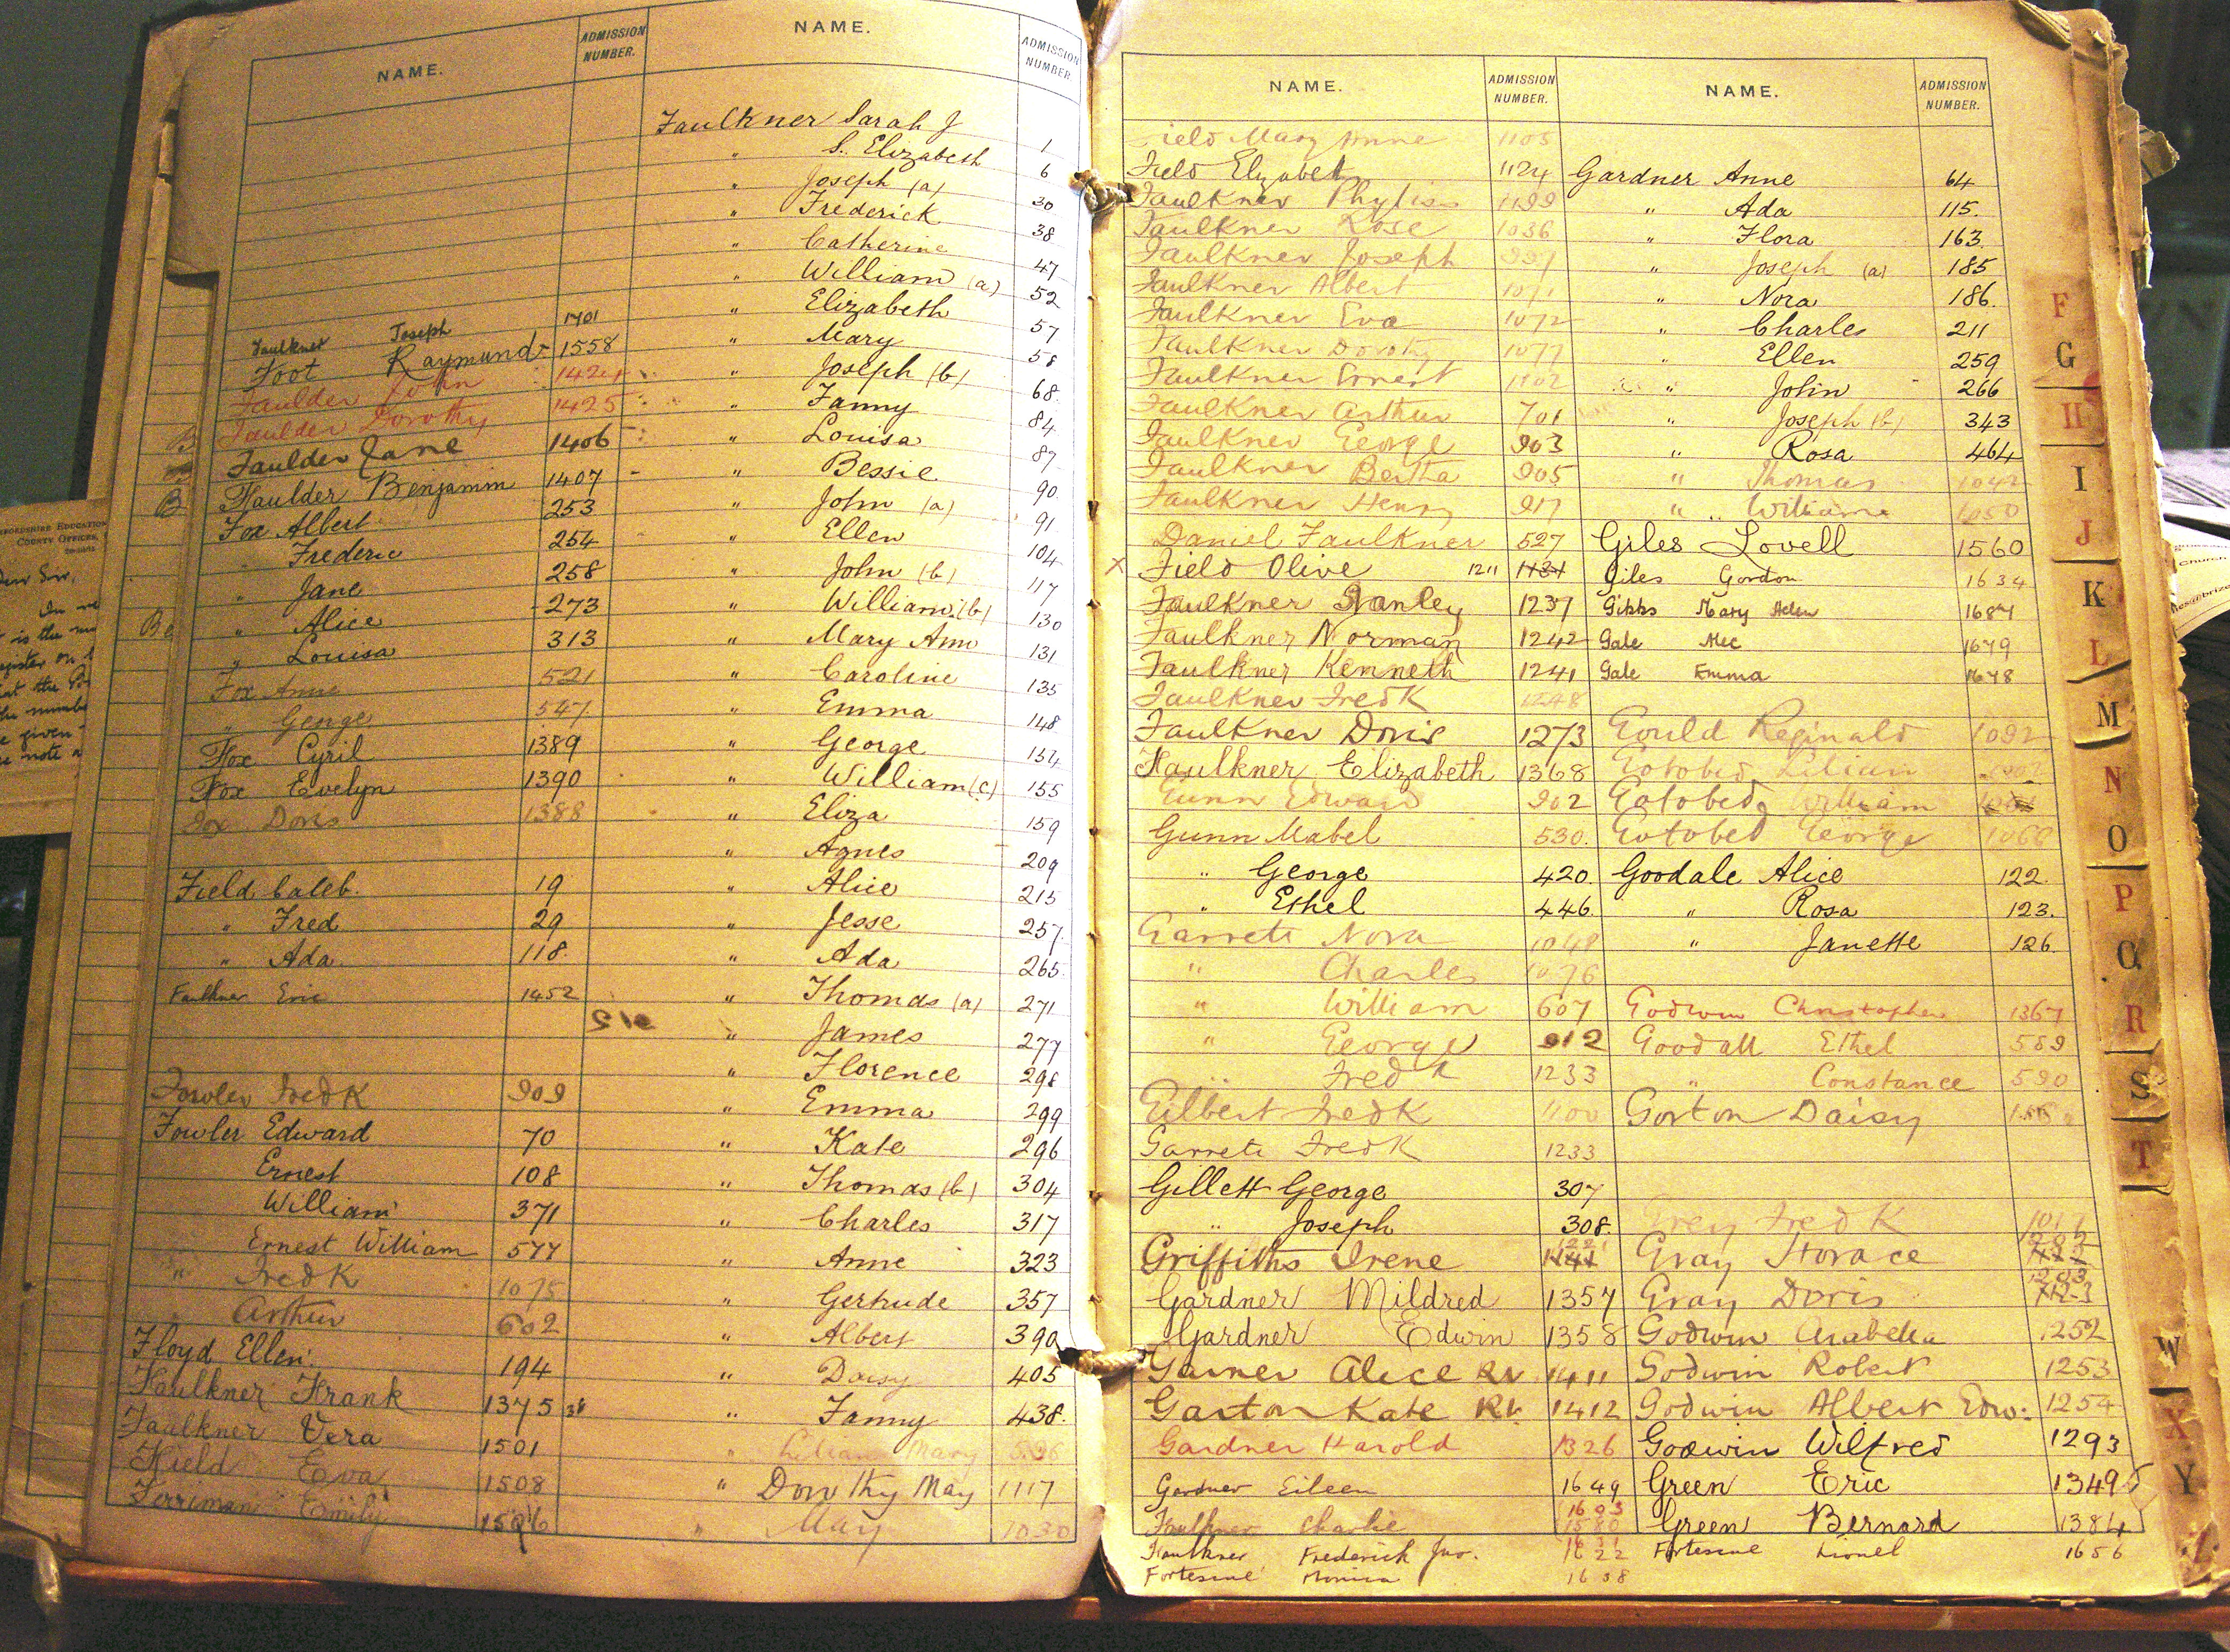 NAME.
ADMISSION NUMBER.
Faulkner Joseph 1701
Foot Raymund 1558
Faulder John 1424
Faulder Dorothy 1425
Faulder Jane 1406
Faulder Benjamin 1407
Fox Albert 253
" Frederic 254
" Jane 258
" Alice 273
" Louisa 313
Fox Anne 521
" George 547
Fox Cyril 1389
Fox Evelyn 1390
Fox Doris 1388
Field Caleb. 19
" Fred 29
" Ada 118.
Faulkner Eric 1452
Fowler Fredk 909
Fowler Edward 70
Ernest 108
William 371
Ernest William 577
" Fredk 1075
" Arthur 602
Floyd Ellen. 194
Faulkner Frank 1375
Faulkner Vera 1501
Field Eva 1508
Ferriman Emily
NAME.
ADMISSION NUMBER
Faulkner Sarah J 1
" S. Elizabeth 6
" Joseph (a) 30
" Frederick 38
" Catherine 47
" William (a) 52
" Elizabeth 57
" Mary 58
" Joseph (b) 68
" Fanny 84
" Louisa 87
" Bessie 90
" John (a) 91
" Ellen 104
" John (b) 117
" William (b) 130
" Mary Ann 131
" Caroline 135
" Emma 148
" George 154
" William (c) 155
" Eliza 159
" Agnes 209
" Alice 215
" Jesse 257
" Ada 265
" Thomas (a) 271
" James 277
" Florence 298
" Emma 299
" Kate 296
" Thomas (b) 304
" Charles 317
" Anne 323
" Gertrude 357
" Albert 390
" Daisy 405
" Fanny 438.
" Lilian Mary
" Dorothy May 1117
" May 1030
NAME.
ADMISSION NUMBER.
Field Mary Anne 1105
Field Elizabeth 1124
Faulkner Phyliss 1199
Faulkner Rose 1036
Faulkner Joseph 991
Faulkner Albert 1071
Faulkner Eva 1072
Faulkner Dorothy 1077
Faulkner Ernest 1102
Faulkner Arthur 701
Faulkner George 903
Faulkner Bertha 905
Faulkner Henry 917
Daniel Faulkner 527
X Field Olive 1211 1131
Faulkner Stanley 1237
Faulkner Norman 1242
Faulkner Kenneth 1241
Faulkner Fredk 1248
Faulkner Doris 1273
Faulkner Elizabeth 1368
Gunn Edward 902
Gunn Mabel 530.
" George 420.
" Ethel 446.
Garrett Nora 1048
" Charles 1076
" William 607
" George 912
" Fredk 1233
Gilbert Fredk 1100
Garrett Fredk 1233
Gillett George 307
" Joseph 308.
Griffiths Irene 1221 1141
Gardner Mildred 1357
Gardner Edwin 1358
Garner Alice 1411
Garton Kate 1412
Gardner Harold 1326
Gardner Eileen 1649
Faulkner Charlie 1603 1580
Faulkner Frederick Jnr. 1622
Fortescue Monica 1638
NAME.
ADMISSION NUMBER.
Gardner Anne 64
" Ada 115.
" Flora 163
" Joseph (a) 185
" Nora 186.
" Charles 211
" Ellen 259
" John 266
" Joseph (b) 343
" Rosa 464
" Thomas 1042
" William 1050
Giles Lovell 1560
Giles Gordon 1634
Gibbs Mary Helen 1687
Gale Alec 1679
Gale Emma 1678
Gould Reginald 1092
Gotobed Lilian
Gotobed William
Gotobed George 1060
Goodale Alice 122
" Rosa 123.
" Janette 126
Godwin Christopher 1367
Goodall Ethel 589
" Constance 590
Gorton Daisy
Grey Fredk
Gray Horace
Gray Doris
Godwin Arabella 1252
Godwin Robert 1253
Godwin Albert Edw. 1254
Godwin Wilfred 1293
Green Eric 1349
Green Bernard 1384
Fortescue Lionel 1656
F
G
H
I
J
K
L
M
N
O
P
Q
R
S
T
W
X
Y
Z